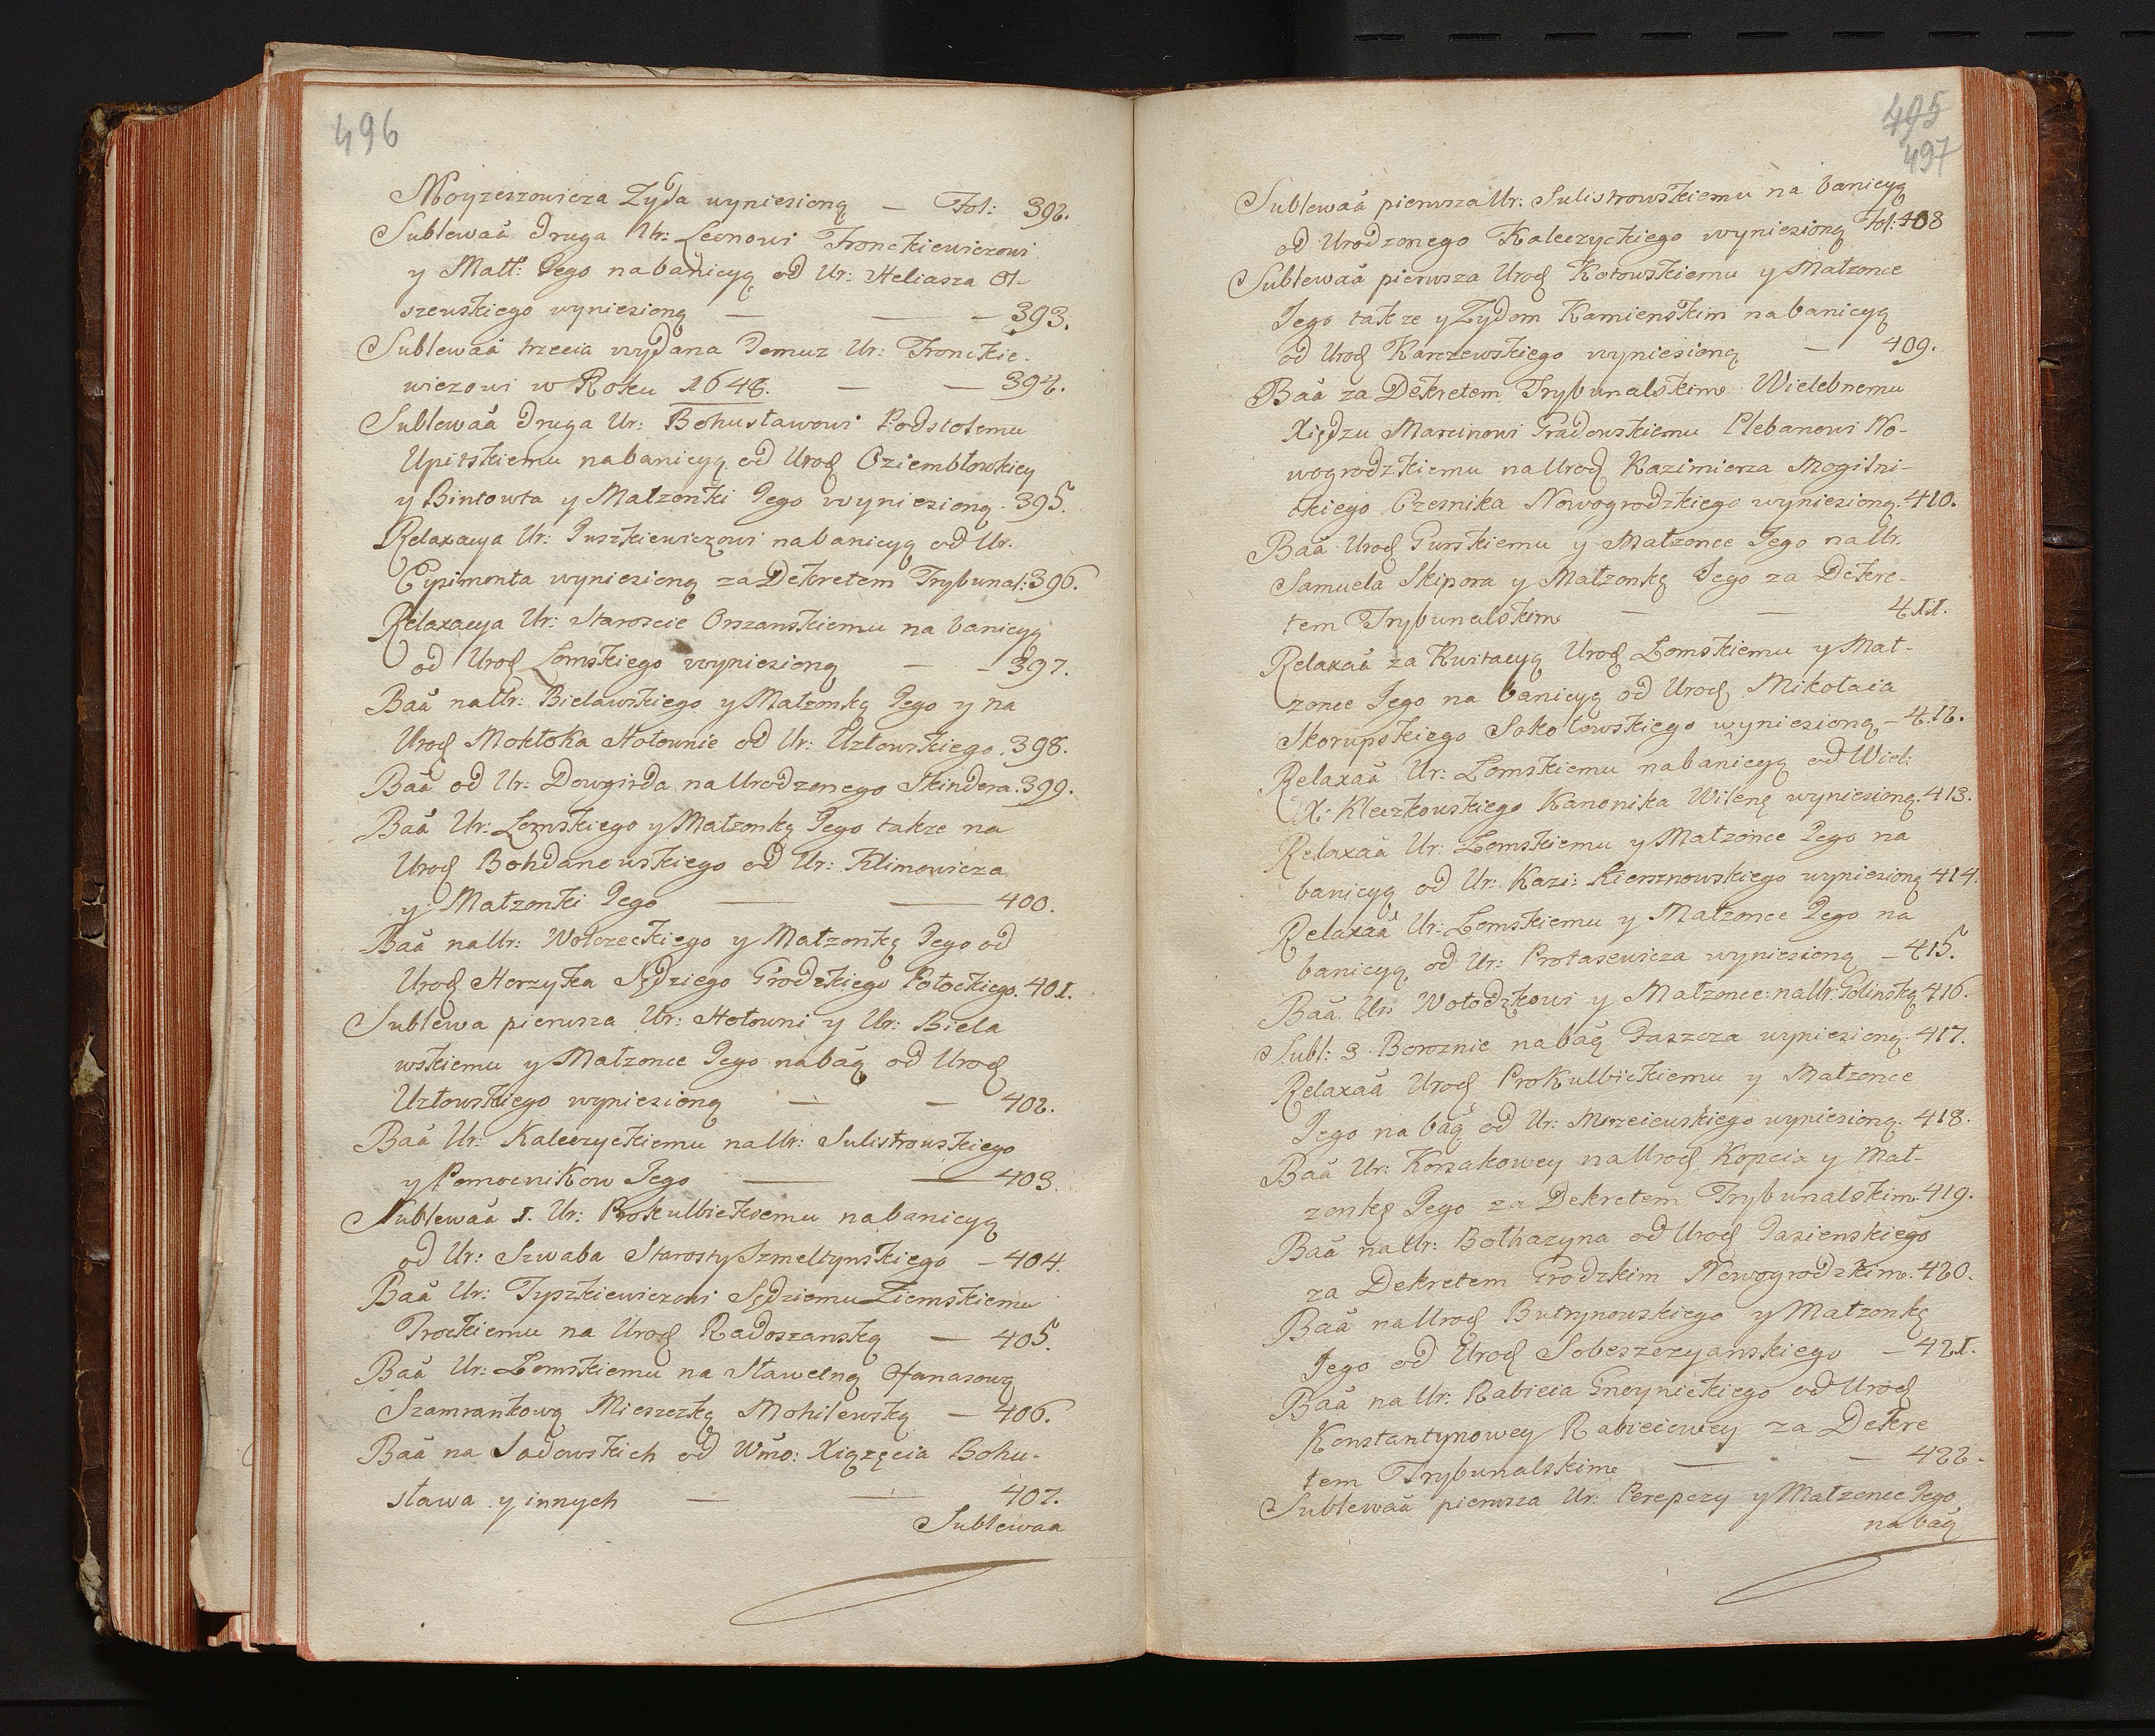 496
Moyzeszowicza Zyda wyniesioną — Fol: 392.
Sublewaã druga Ur: Leonowi Fronckiewiczowi
y Małł: Jego na banicyą od Ur: Heliasza Ol-
szewskiego wyniesioną — — — 393.
Sublewaã trzecia wydana Jemuz Ur: Fronckie-
wiczowi w Roku 1648. — — 394.
Sublewaã druga Ur: Bohusławowi Podstolemu
Upitskiemu na banicyą od Urod Oziembłowskiey
y Bintowta y Małzonki Jego wyniesioną. 395.
Relaxacya Ur: Puszkiewiczowi na banicyą od Ur.
Eysimonta wyniesioną za Dekretem Trybunal: 396.
Relaxacya Ur: Staroscie Orszanskiemu na banicyą
od Urod Łomskiego wyniesioną — — 397.
Baã na Ur: Bielawskiego y Małzonkę Jego y na
Urod Moktoka Hołownie od Ur: Uzłowskiego. 398.
Baã od Ur: Dowgirda na Urodzonego Skindera. 399.
Baã Ur: Łomskiego y Małzonkę Jego takze na
Urod Bohdanowskiego od Ur: Klimowicza
y Małzonki Jego — — 400.
Baã na Ur: Wołczeckiego y Małzonkę Jego od
Urod Horzyka Sędziego Grodzkiego Połockiego. 401.
Sublewa pierwsza Ur: Hołowni y Ur: Biela
wskiemu y Małzonce Jego na bãą od Urod
Uzłowskiego wyniesioną — — 402.
Baã Ur: Kaleczyckiemu na Ur: Sulistrowskiego
y Pomocnikow Jego — — 403.
Sublewaã 1. Ur: Prokulbickiemu na banicyą
od Ur: Szwaba Starosty Szmeltynskiego — 404.
Baã Ur: Tyszkiewiczowi Sędziemu Ziemskiemu
Trockiemu na Urod Radoszanską — 405.
Baã Ur: Łomskiemu na Sławetną Afanasową
Szamrankową Mieszczkę Mohilewską — 406.
Baã na Sadowskich od Wmo: Xiążęcia Bohu-
sława y innych — — 407.
Sublewaa
495
497
Sublewaã pierwsza Ur: Sulistrowskiemu na banicyą
od Urodzonego Kaleczyckiego wyniesioną Fol: 408
Sublewaã pierwsza Urod Kotowskiemu y Małzonce
Jego takze y Zydom Kamienskim na banicyą
od Urod Karczewskiego wyniesioną — 409.
Baã za Dekretem Trybunalskim Wielebnemu
Xiędzu Marcinowi Gradowskiemu Plebanowi No-
wogrodzkiemu na Urod Kazimierza Mogilni-
ckiego Czesnika Nowogrodzkiego wyniesioną. 410.
Baã Urod Gurskiemu y Małzonce Jego na Ur.
Samuela Skipora y Małzonkę Jego za Dekre-
tem Trybunalskim — — 411.
Relaxaã za Kwitacyą Urod Łomskiemu y Mał-
zonce Jego na banicyą od Urod Mikołaia
Skorupskiego Sokołowskiego wyniesioną — 412.
Relaxaã Ur: Łomskiemu na banicyą od Wiel:
X: Kleczkowskiego Kanonika Wileng wyniesioną. 413.
Relaxaã Ur: Łomskiemu y Małzonce Jego na
banicyą od Ur: Kazi: Kiersznowskiego wyniesioną 414.
Relaxaã Ur: Łomskiemu y Małzonce Jego na
banicyą od Ur: Protasewicza wyniesioną — 415.
Baã Ur: Wołodzkowi y Małzonce: na Ur: Golinską 416.
Subl: 3. Boroznie na bãą Daszcza wyniesioną. 417.
Relaxaã Urod Prokulbickiemu y Małzonce
Jego na bãą od Ur: Morzeiewskiego wyniesioną. 418.
Baã Ur: Korsakowey na Urod Kopcia y Mał-
zonkę Jego za Dekretem Trybunalskim. 419.
Baã na Ur: Bołhazyna od Urod Jasienskiego
za Dekretem Grodzkim Nowogrodzkim. 420.
Baã na Urod Butrynowskiego y Małzonkę
Jego od Urod Sobeszczyanskiego — 421.
Baã na Ur: Rabieia Gnoynickiego od Urod
Konstantynowey Rabieiowey za Dekre
tem Trybunalskim — — 422.
Sublewaã pierwsza Ur: Perepeczy y Małzonce Jego
na bãą